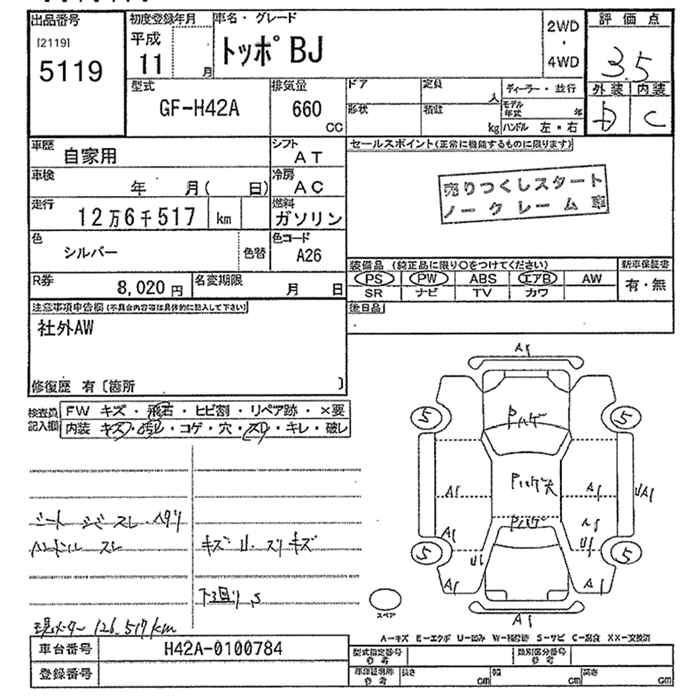 出品番号 初度登録年月 車名・グレード 2WD・4WD 評価点
[2119]
5119 平成 11 月 トッポBJ 3.5
型式 排気量 ドア 定員 人 ディーラー・並行 外装 内装
GF-H42A 660 CC 形状 積載 kg モデル年式 年 ハンドル 左・右 C
車歴 自家用 シフト AT セールスポイント(正常に機能するものに限ります)
車検 年 月( 日) 冷房 AC 売りつくしスタート
走行 12万6千517 km 燃料 ガソリン ノークレーム
色 シルバー 色替 色コード A26
装備品 (純正品に限り○をつけてください) 新車保証書
R券 8,020円 名変期限 月 日 PS PW ABS エアB AW 有・無
SR ナビ TV カワ
注意事項申告欄(不具合内容等は具体的に記入して下さい) 後日品
社外AW
修復歴 有〔箇所 〕
検査員記入欄 FW キズ・飛石・ヒビ割・リペア跡・×要
内装 キズ・汚れ・コゲ・穴・スレ・キレ・破レ
A1
5 Pハゲ 5
Pハゲ大
A1 A1 UA1
Pハゲ
A1 A1
U1 U1
5 5
A1 A1
A1
シート シミ スレ ヘタリ
ハンドル スレ キズ U・スリキズ
下回り S
スペア
現メーター 126,517km
A-キズ E-エクボ U-凹み W-補修跡 S-サビ C-腐食 XX-交換済
車台番号 H42A-0100784 型式指定番号 参考 類別区分番号 参考
登録番号 車庫証明用 参考 長さ cm 幅 cm 高さ cm